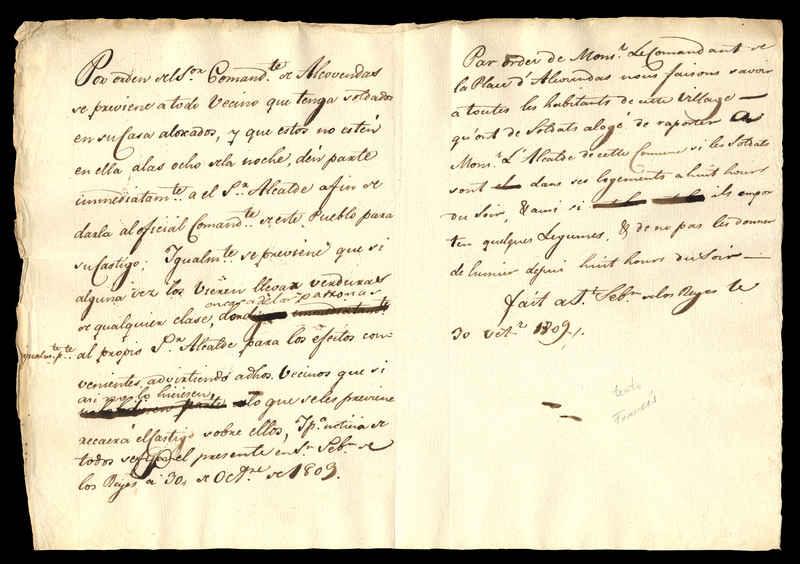 Por orden del S.or Comand.te de Alcovendas
se previene a todo Vecino que tenga soldados
en su Casa aloxados, y que estos no estén
en ella, a las ocho de la noche, den parte
immediatam.te a el S.r Alcalde a fin de
darla al oficial Comand.te de este Pueblo para
su Castigo; Igualm.te se previene que si
alguna vez los vieren llevar verduras
en casa de los Patronos
de qualquier clase, den
igualm.te p.te al propio S.r Alcalde para los efectos con-
venientes, advirtiendo a dhos. Vecinos que si
asi no lo hiciesen,
lo que se les previene
recaerá el Castigo sobre ellos, Y p.a noticia de
todos se fixa el presente en S.n Seb.n de
los Reyes à 30,, de Oct.re de 1809.
Par order de Mons.r Le Comandant de
la Place d'Alcovendas nous faisons savoir
a toutes les habitants de cette Village —
qu'ont de Soldats alogé de raporter a
Mons.r L'Alcalde de cette Comune si les Soldats
sont dans ses logements a huit hours
du Soir, & ausi si ils empor
ten quelques Legumes, & de no pas les donner
de lumier depuis huit hours du Soir —
fait a S.t Seb.n de los Reyes le
30 oct.r 1809,,.
texto
Francés